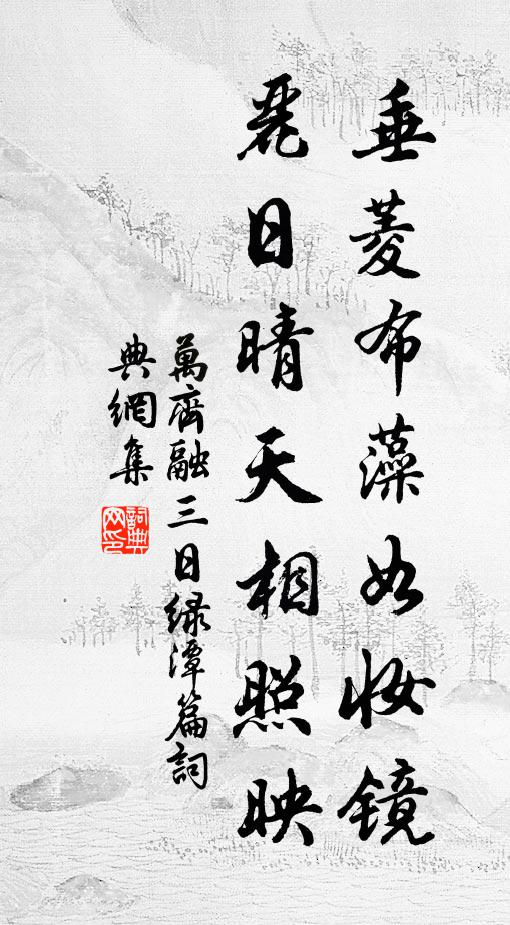 垂菱布藻如妆镜
麗日晴天相照映
萬齊融三日绿潭篇詞
典網集
詞典网印